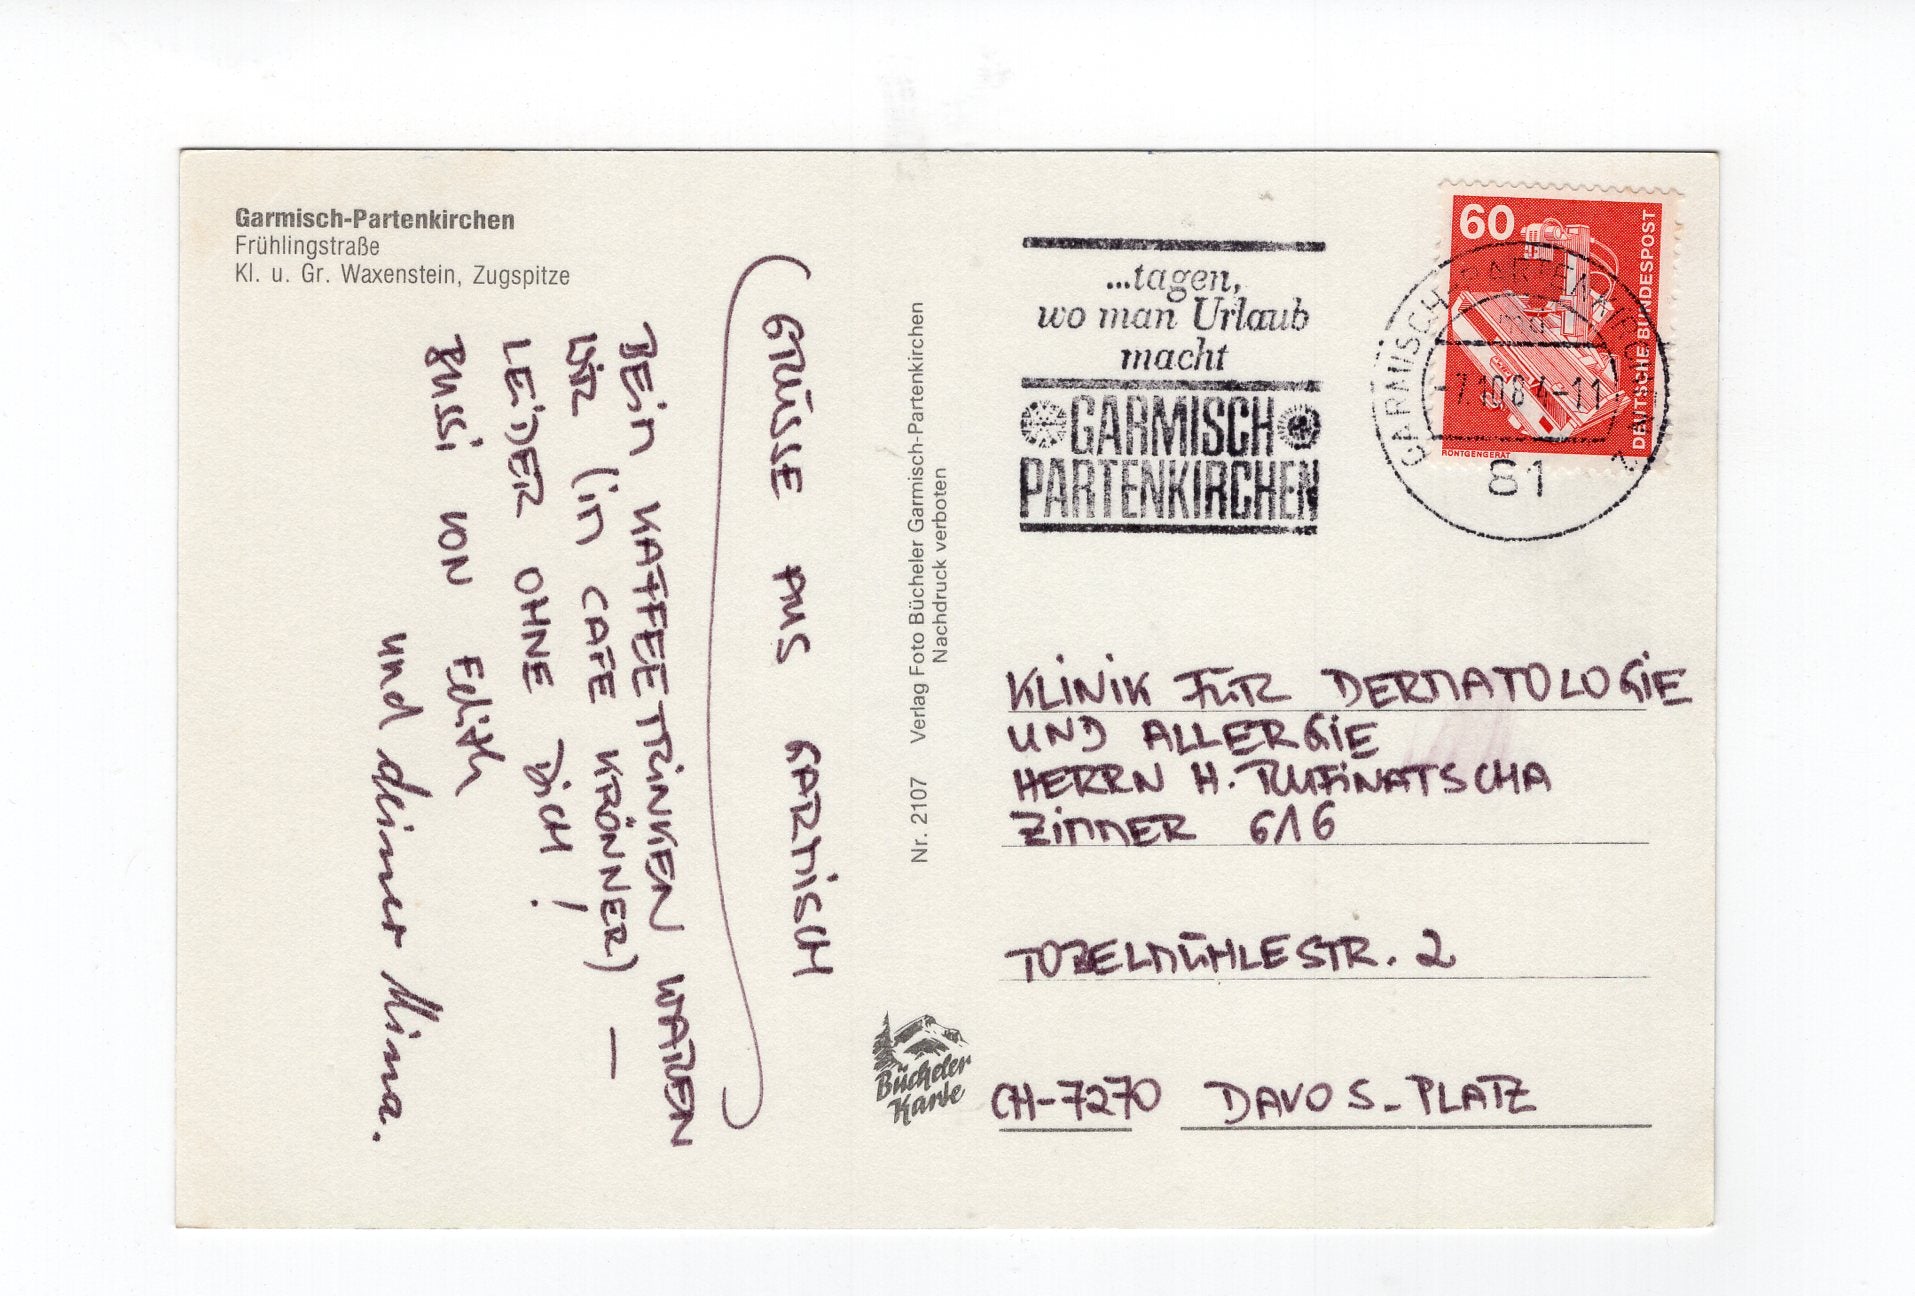 Garmisch-Partenkirchen
Frühlingstraße
Kl. u. Gr. Waxenstein, Zugspitze
GRÜSSE AUS GARMISCH
BEIM KAFFEETRINKEN WAREN
WIR (IN CAFE KRÖNNER) —
LEIDER OHNE DICH!
BUSSI VON Edith
und deiner Mima.
Nr. 2107 Verlag Foto Bücheler Garmisch-Partenkirchen
Nachdruck verboten
Bücheler
Karte
...tagen,
wo man Urlaub
macht
GARMISCH
PARTENKIRCHEN
60
DEUTSCHE BUNDESPOST
RÖNTGENGERÄT
GARMISCH-PARTENKIRCHEN
-7.10.84-11
81
KLINIK FÜR DERMATOLOGIE
UND ALLERGIE
HERRN H. RUFINATSCHA
ZIMMER 616
TOBELMÜHLESTR. 2
CH-7270 DAVOS-PLATZ